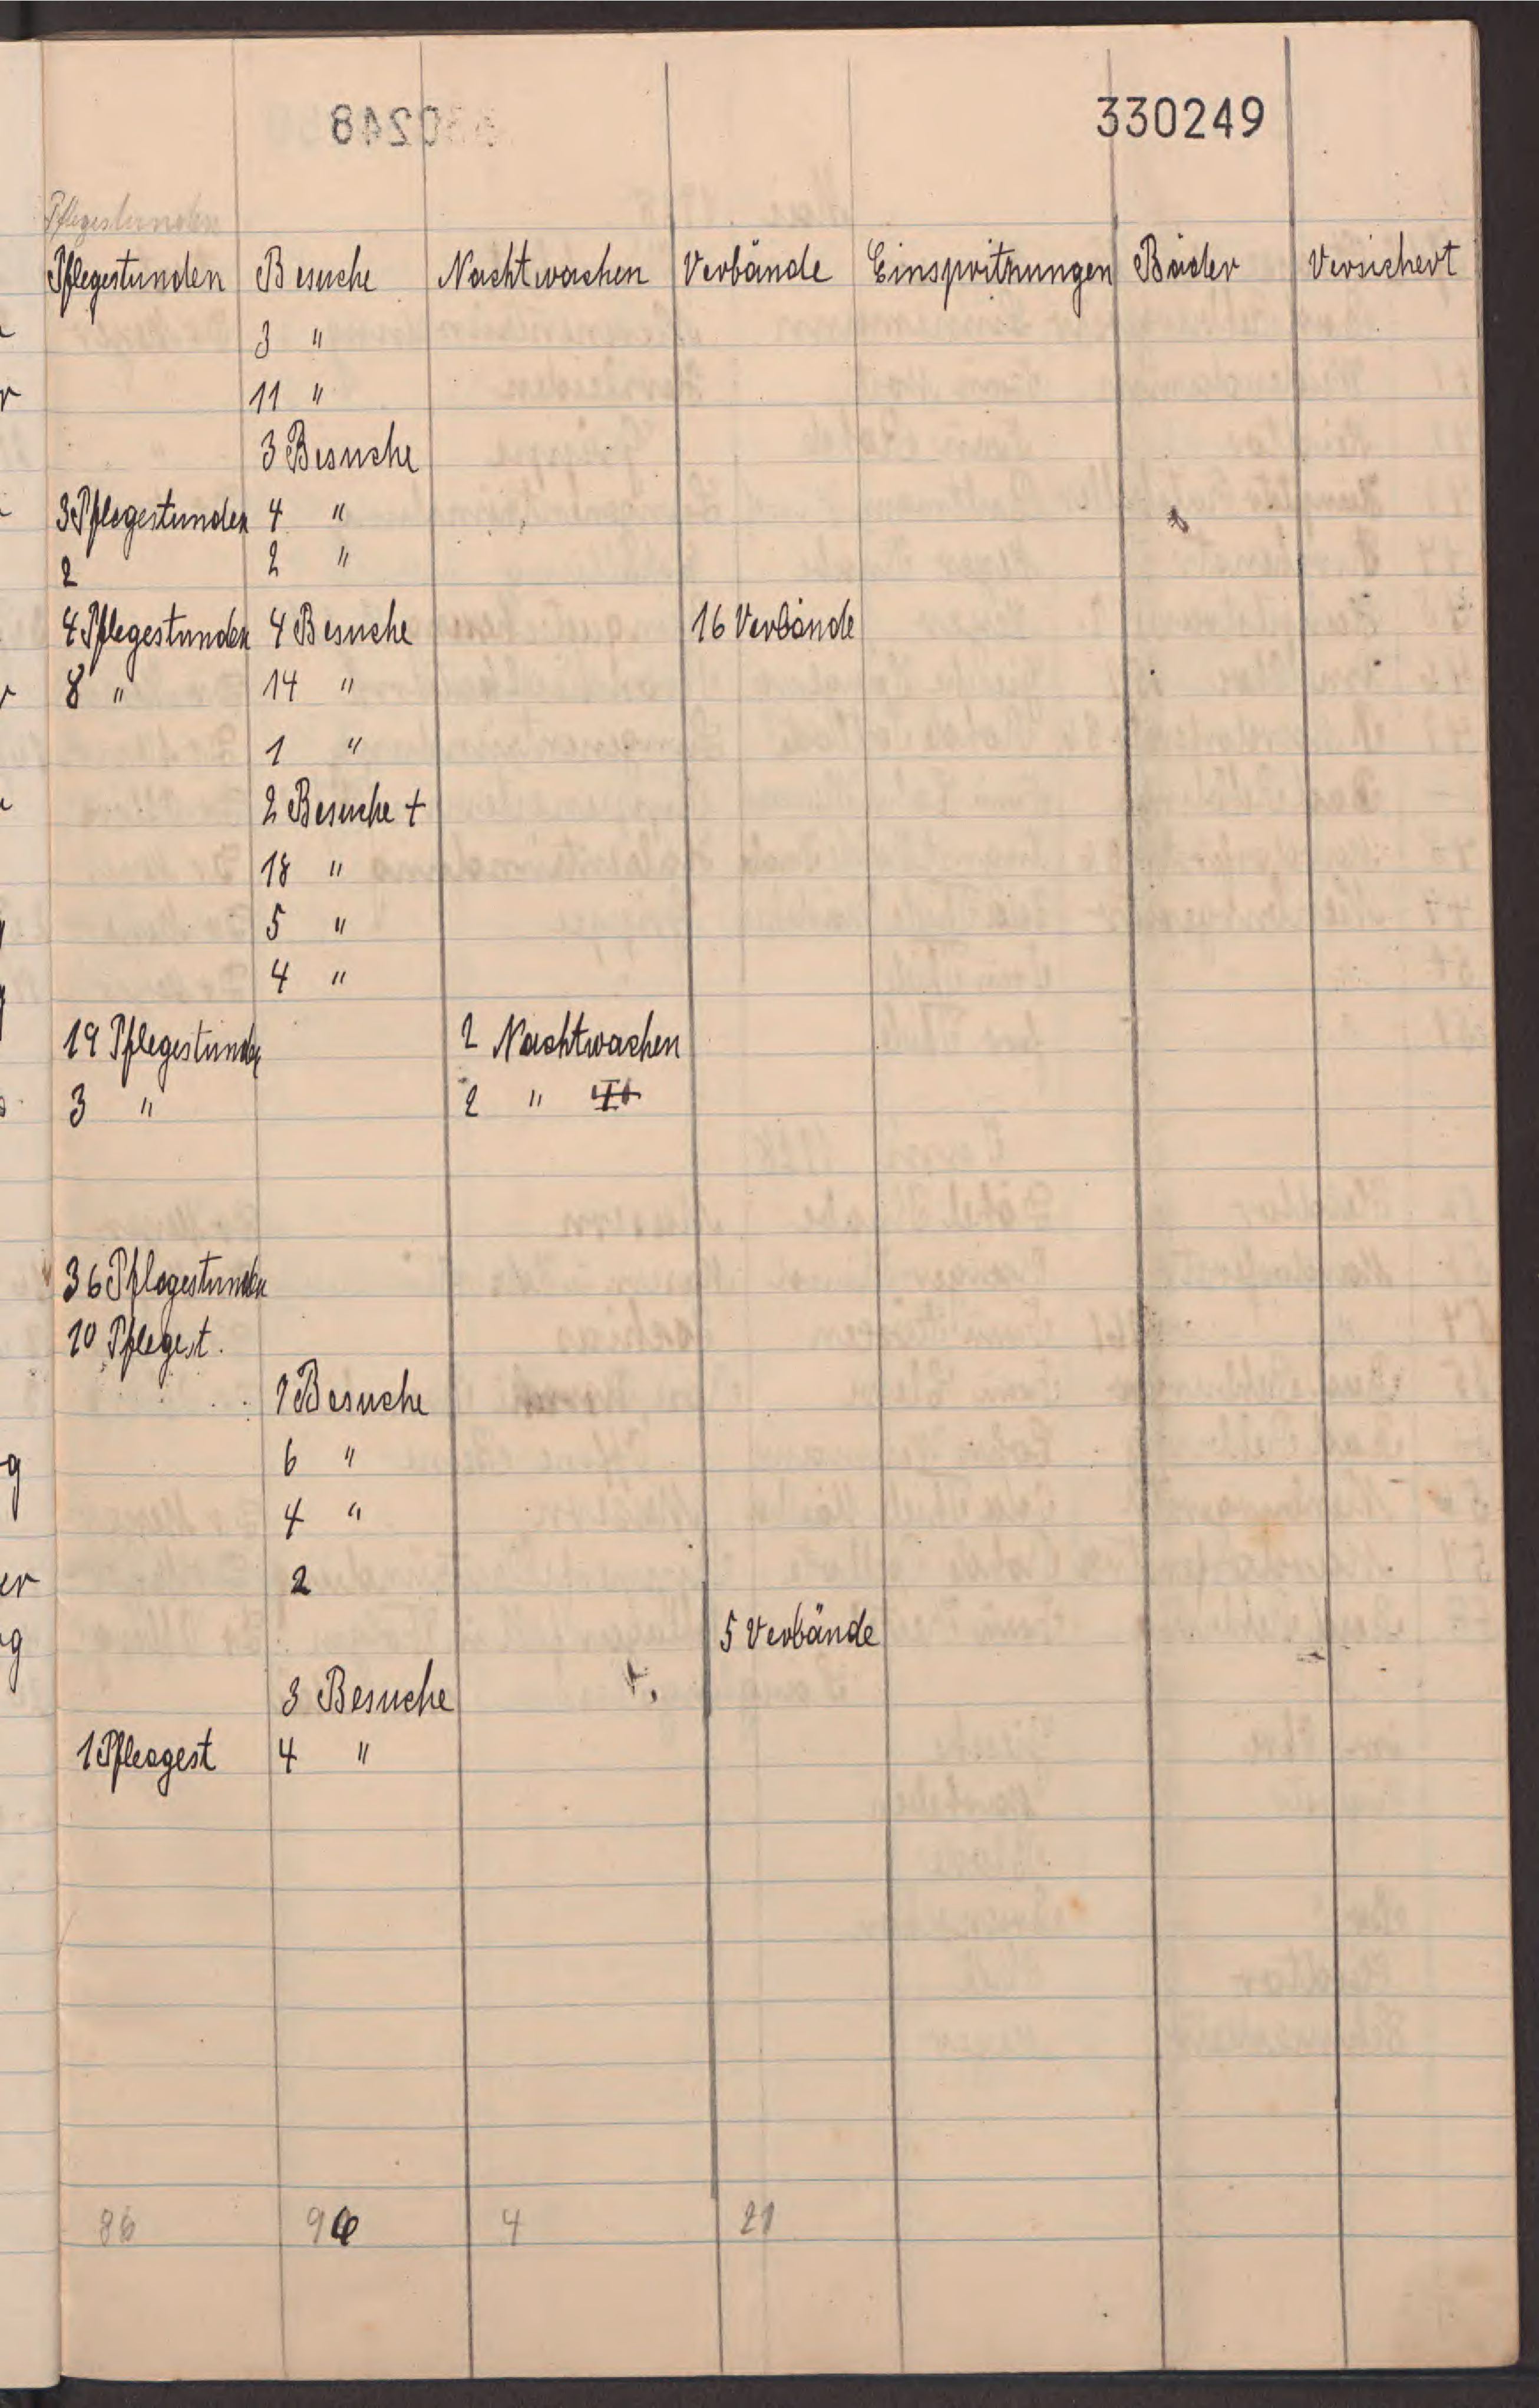 330249
Pflegestunden
Pflegestunden Besuche Nachtwachen Verbände Einspritzungen Bäder Versichert
3 "
11 "
3 Besuche
3 Pflegestunden 4 "
2 2 "
4 Pflegestunden 4 Besuche 16 Verbände
8 " 14 "
1 "
2 Besuche +
18 "
5 "
4 "
19 Pflegestunden 2 Nachtwachen
3 " 2 "
36 Pflegestunden
10 Pflegest.
1 Besuche
6 "
4 "
2
5 Verbände
3 Besuche
1 Pflegest 4 "
86 96 4 21